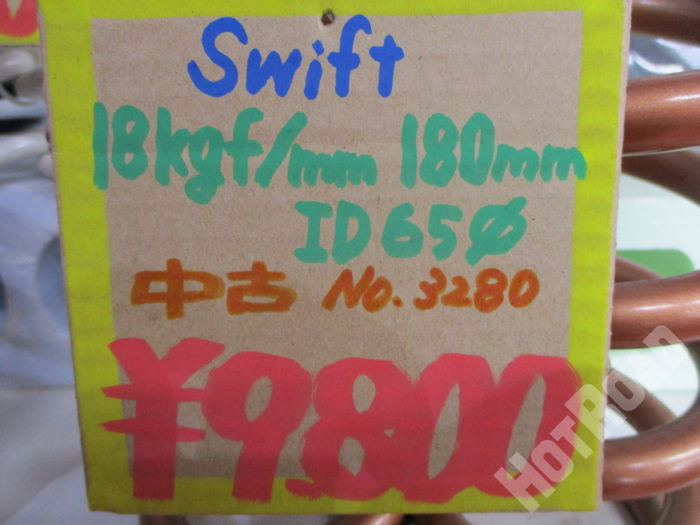 Swift
18kgf/mm 180mm
ID65Φ
中古 No.3280
¥9,800
HOTROAD